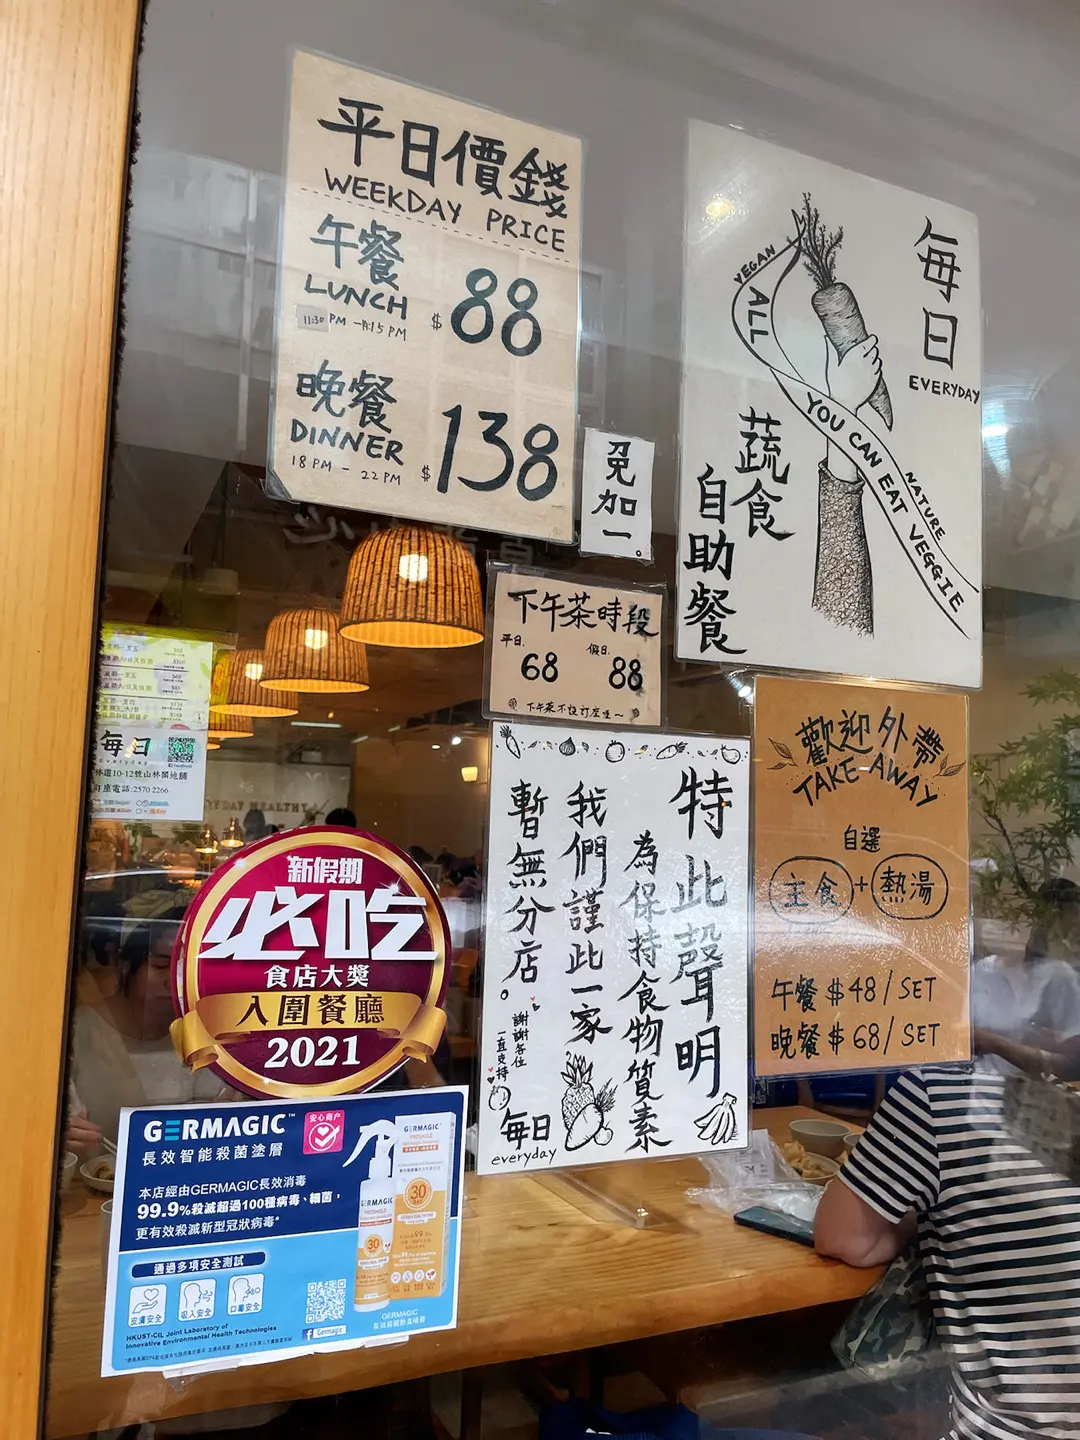 平日價錢
WEEKDAY PRICE
午餐
LUNCH
11:30 PM - 4:15 PM
$ 88
晚餐
DINNER
18 PM - 22 PM
$ 138
免加一。
每日
EVERYDAY
VEGAN
ALL
YOU CAN EAT VEGGIE
NATURE
蔬食
自助餐
下午茶時段
平日. 假日.
68 88
下午茶不設訂座哇~
歡迎外帶
TAKE-AWAY
自選
主食 + 熱湯
午餐 $48 / SET
晚餐 $68 / SET
特此聲明
為保持食物質素
我們謹此一家
暫無分店。
謝謝各位
一直支持
每日
everyday
每日
everyday
林道10-12號山林閣地舖
訂座電話:2570 2266
新假期
必吃
食店大獎
入圍餐廳
2021
GERMAGIC™
安心商户
長效智能殺菌塗層
本店經由GERMAGIC長效消毒
99.9%殺滅超過100種病毒、細菌，
更有效殺滅新型冠狀病毒*
通過多項安全測試
皮膚安全
吸入安全
口毒安全
HKUST-CIL Joint Laboratory of
Innovative Environmental Health Technologies
Germagic
GERMAGIC
30
GERMAGIC
30
99.9%
GERMAGIC